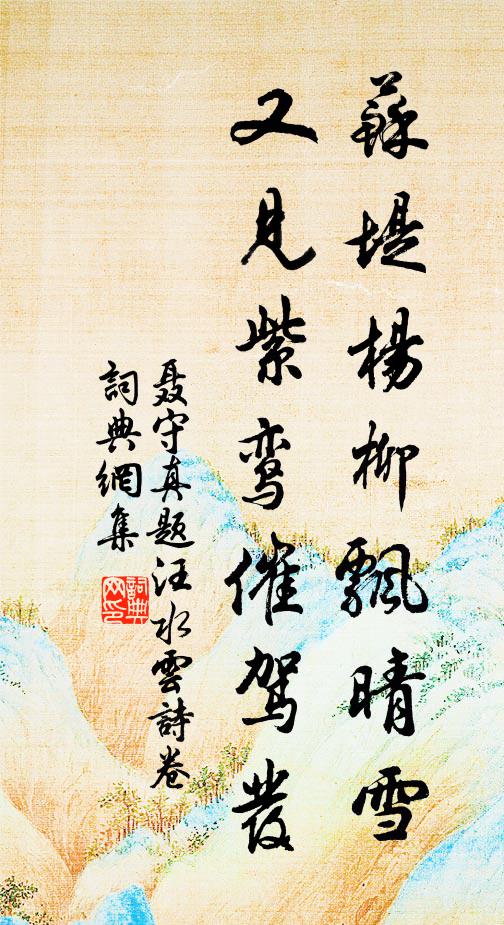 蘇堤楊柳飄晴雪
又見紫鸾催駕發
聂守真题汪水雲詩卷
詞典網集
詞典
網印